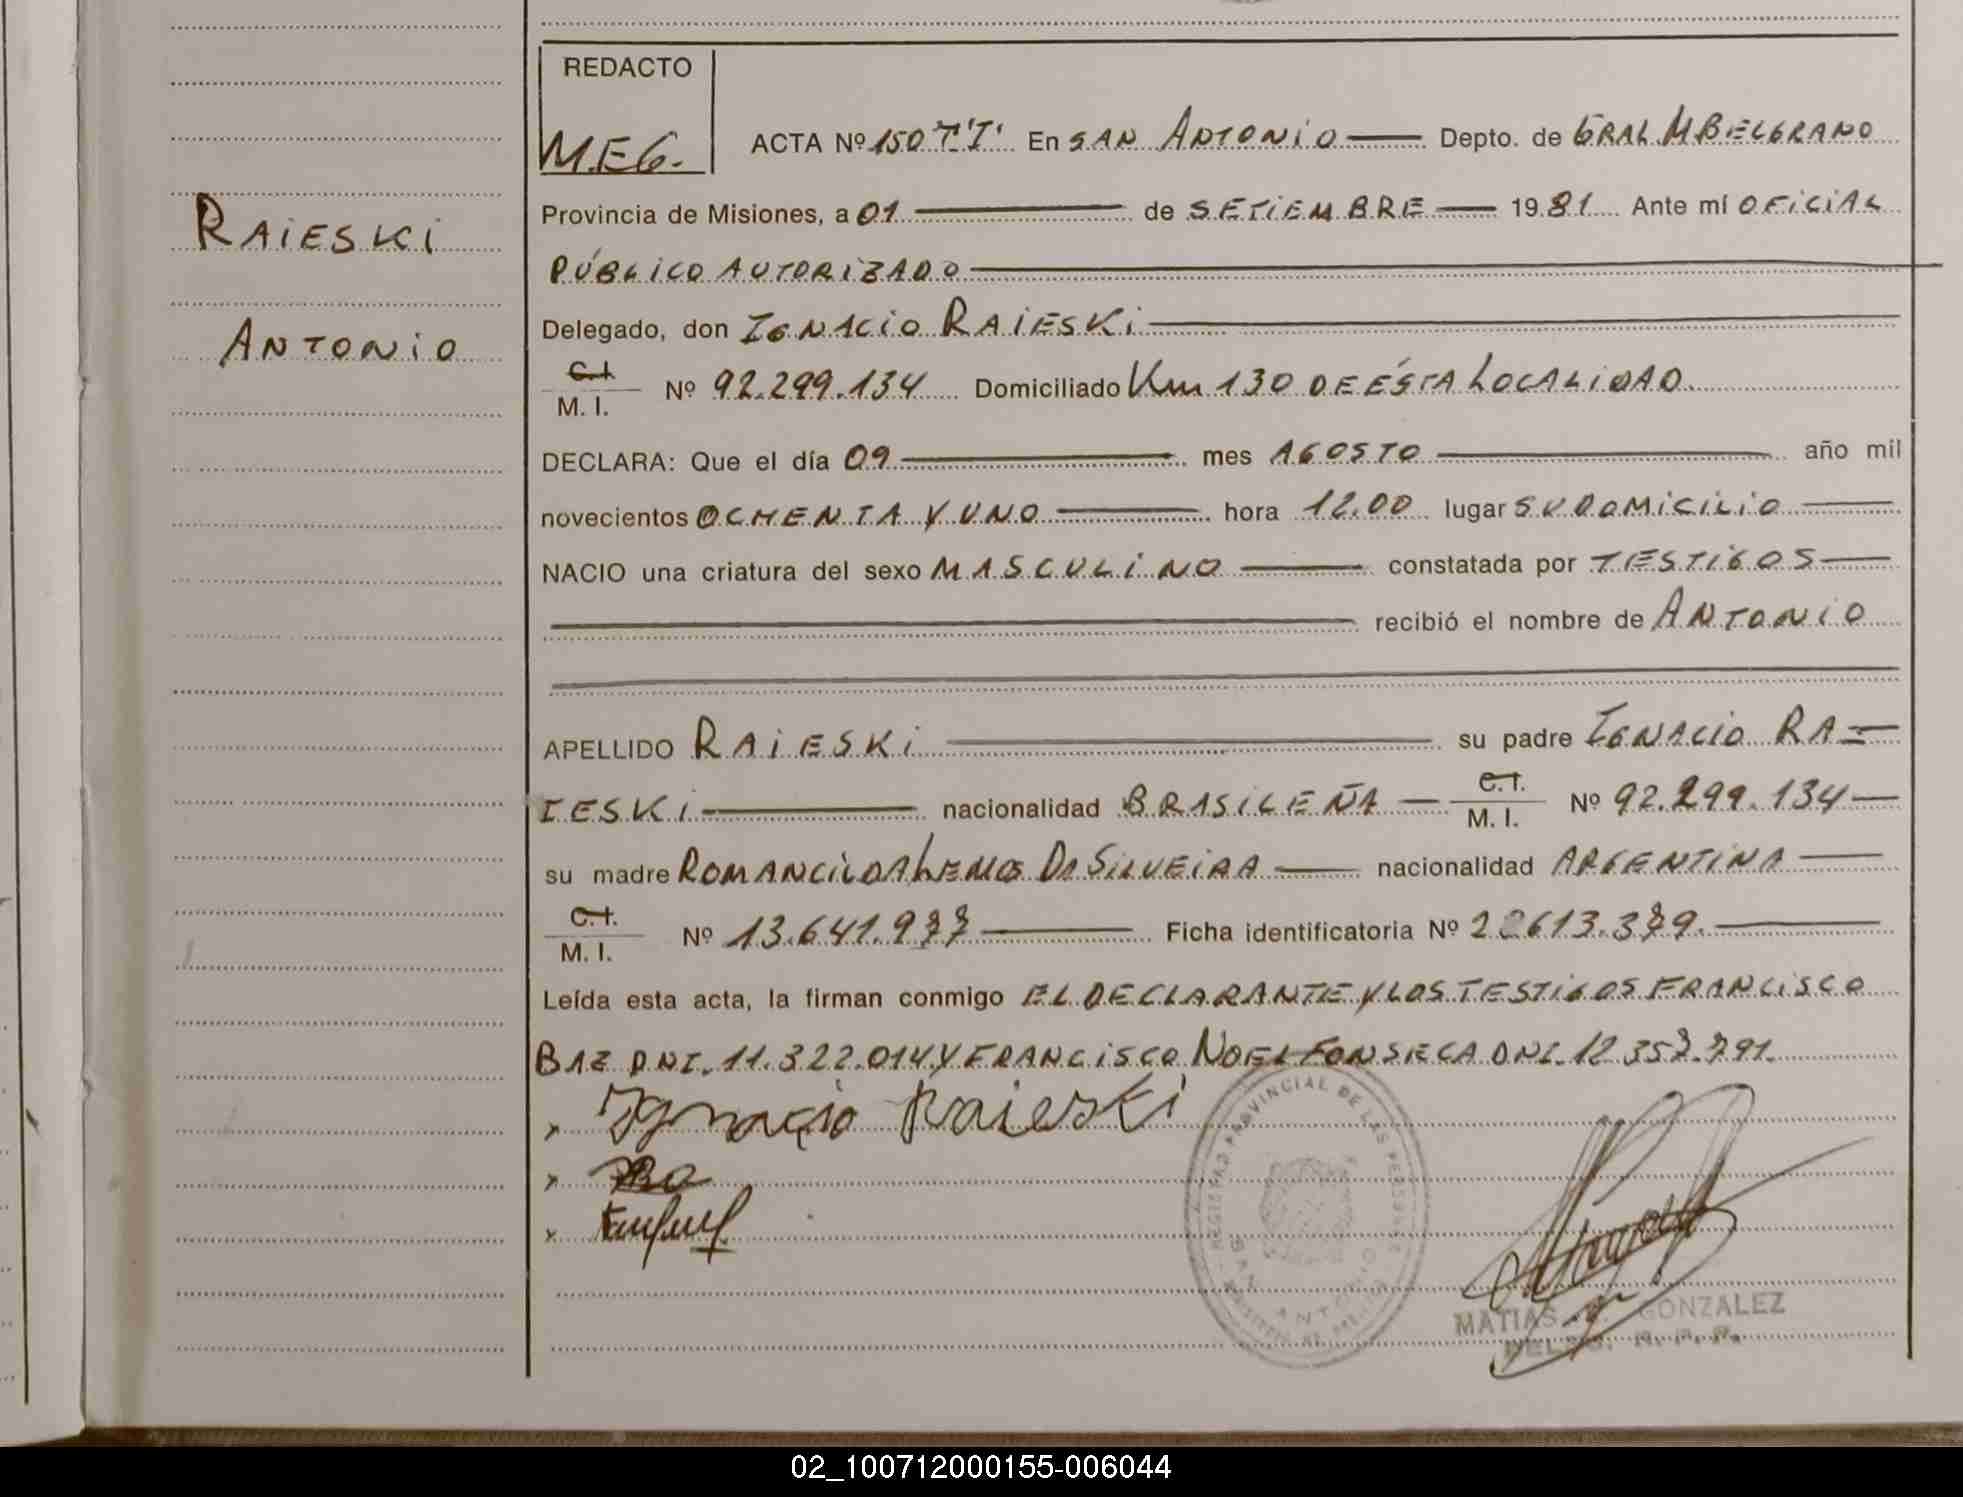 REDACTO
M.E.G.
ACTA Nº 150 "T.I" En SAN ANTONIO Depto. de GRAL M BELGRANO
Provincia de Misiones, a 01 de SETIEMBRE 1981 Ante mí OFICIAL
PÚBLICO AUTORIZADO
RAIESKI
Delegado, don IGNACIO RAIESKI
ANTONIO
C.I. M. I. Nº 92.299.134 Domiciliado Km 130 DE ÉSTA LOCALIDAD.
DECLARA: Que el día 09 mes AGOSTO año mil
novecientos OCHENTA Y UNO hora 12.00 lugar SU DOMICILIO
NACIO una criatura del sexo MASCULINO constatada por TESTIGOS
recibió el nombre de ANTONIO
APELLIDO RAIESKI su padre IGNACIO RA=
IESKI nacionalidad BRASILEÑA C.I. M. I. Nº 92.299.134
su madre ROMANCILDA LEMOS DA SILVEIRA nacionalidad ARGENTINA
C.I. M. I. Nº 13.641.977 Ficha identificatoria Nº 22613.379.
Leída esta acta, la firman conmigo EL DECLARANTE Y LOS TESTIGOS FRANCISCO
BAZ DNI. 11.322.014 Y FRANCISCO NOEL FONSECA DNI. 12 357.791.
Ignacio Raieski
REGISTRO PROVINCIAL DE LAS PERSONAS
SAN ANTONIO
MATIAS GONZALEZ
02_100712000155-006044